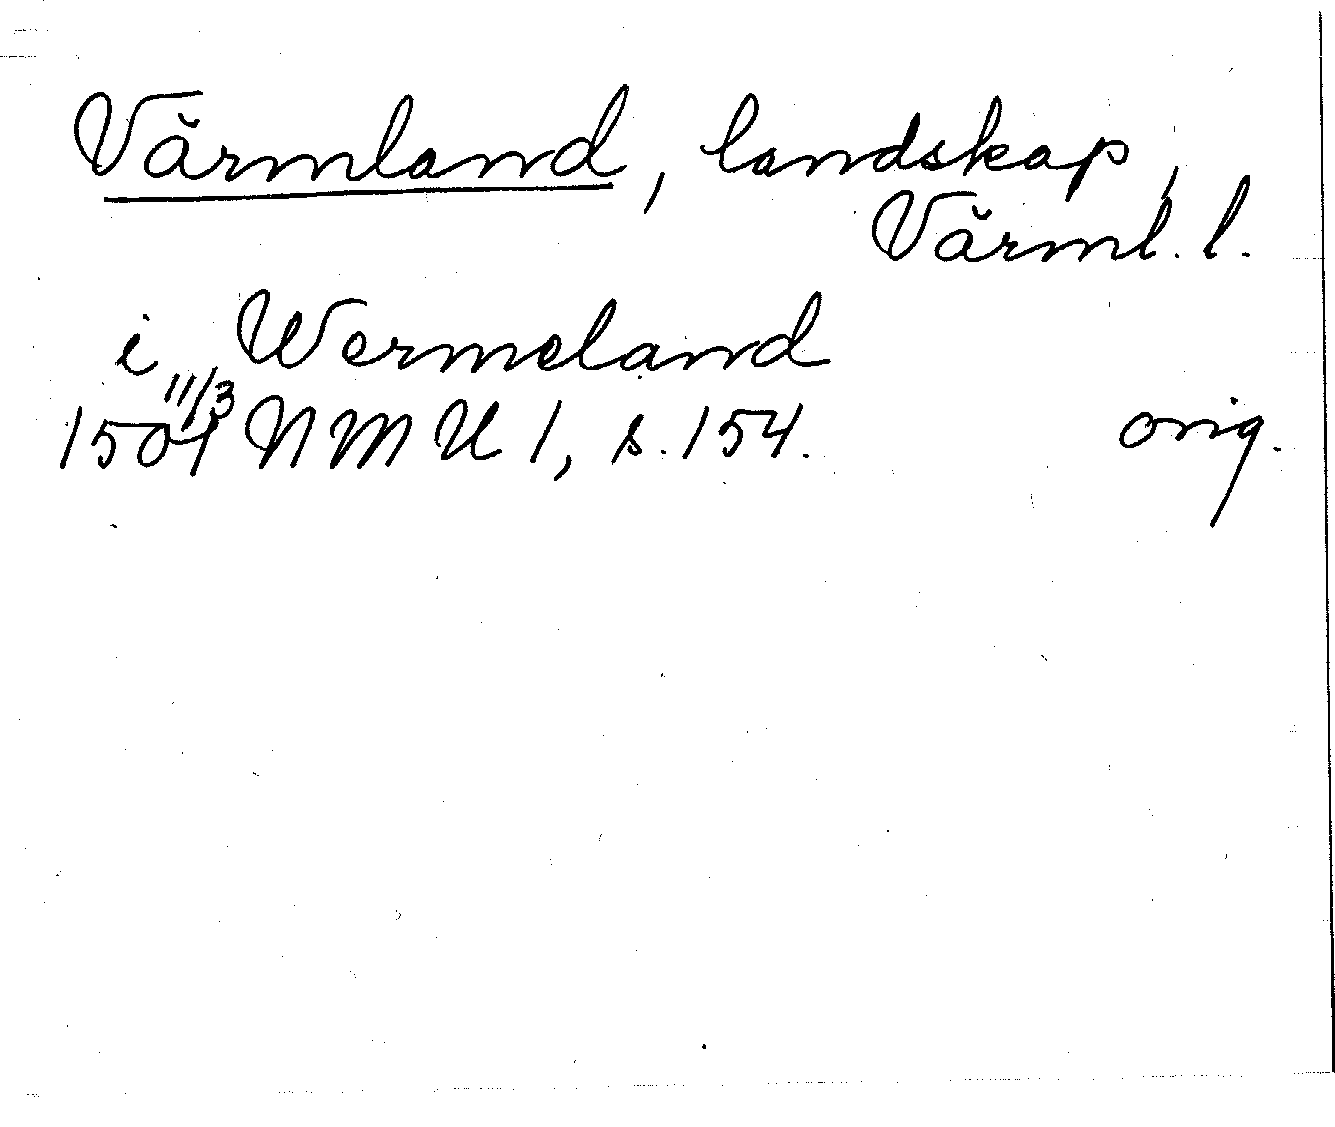 Värmland, landskap,
Värml. l.
i Wermeland
1501 11/3 NMU 1, s. 154. orig.